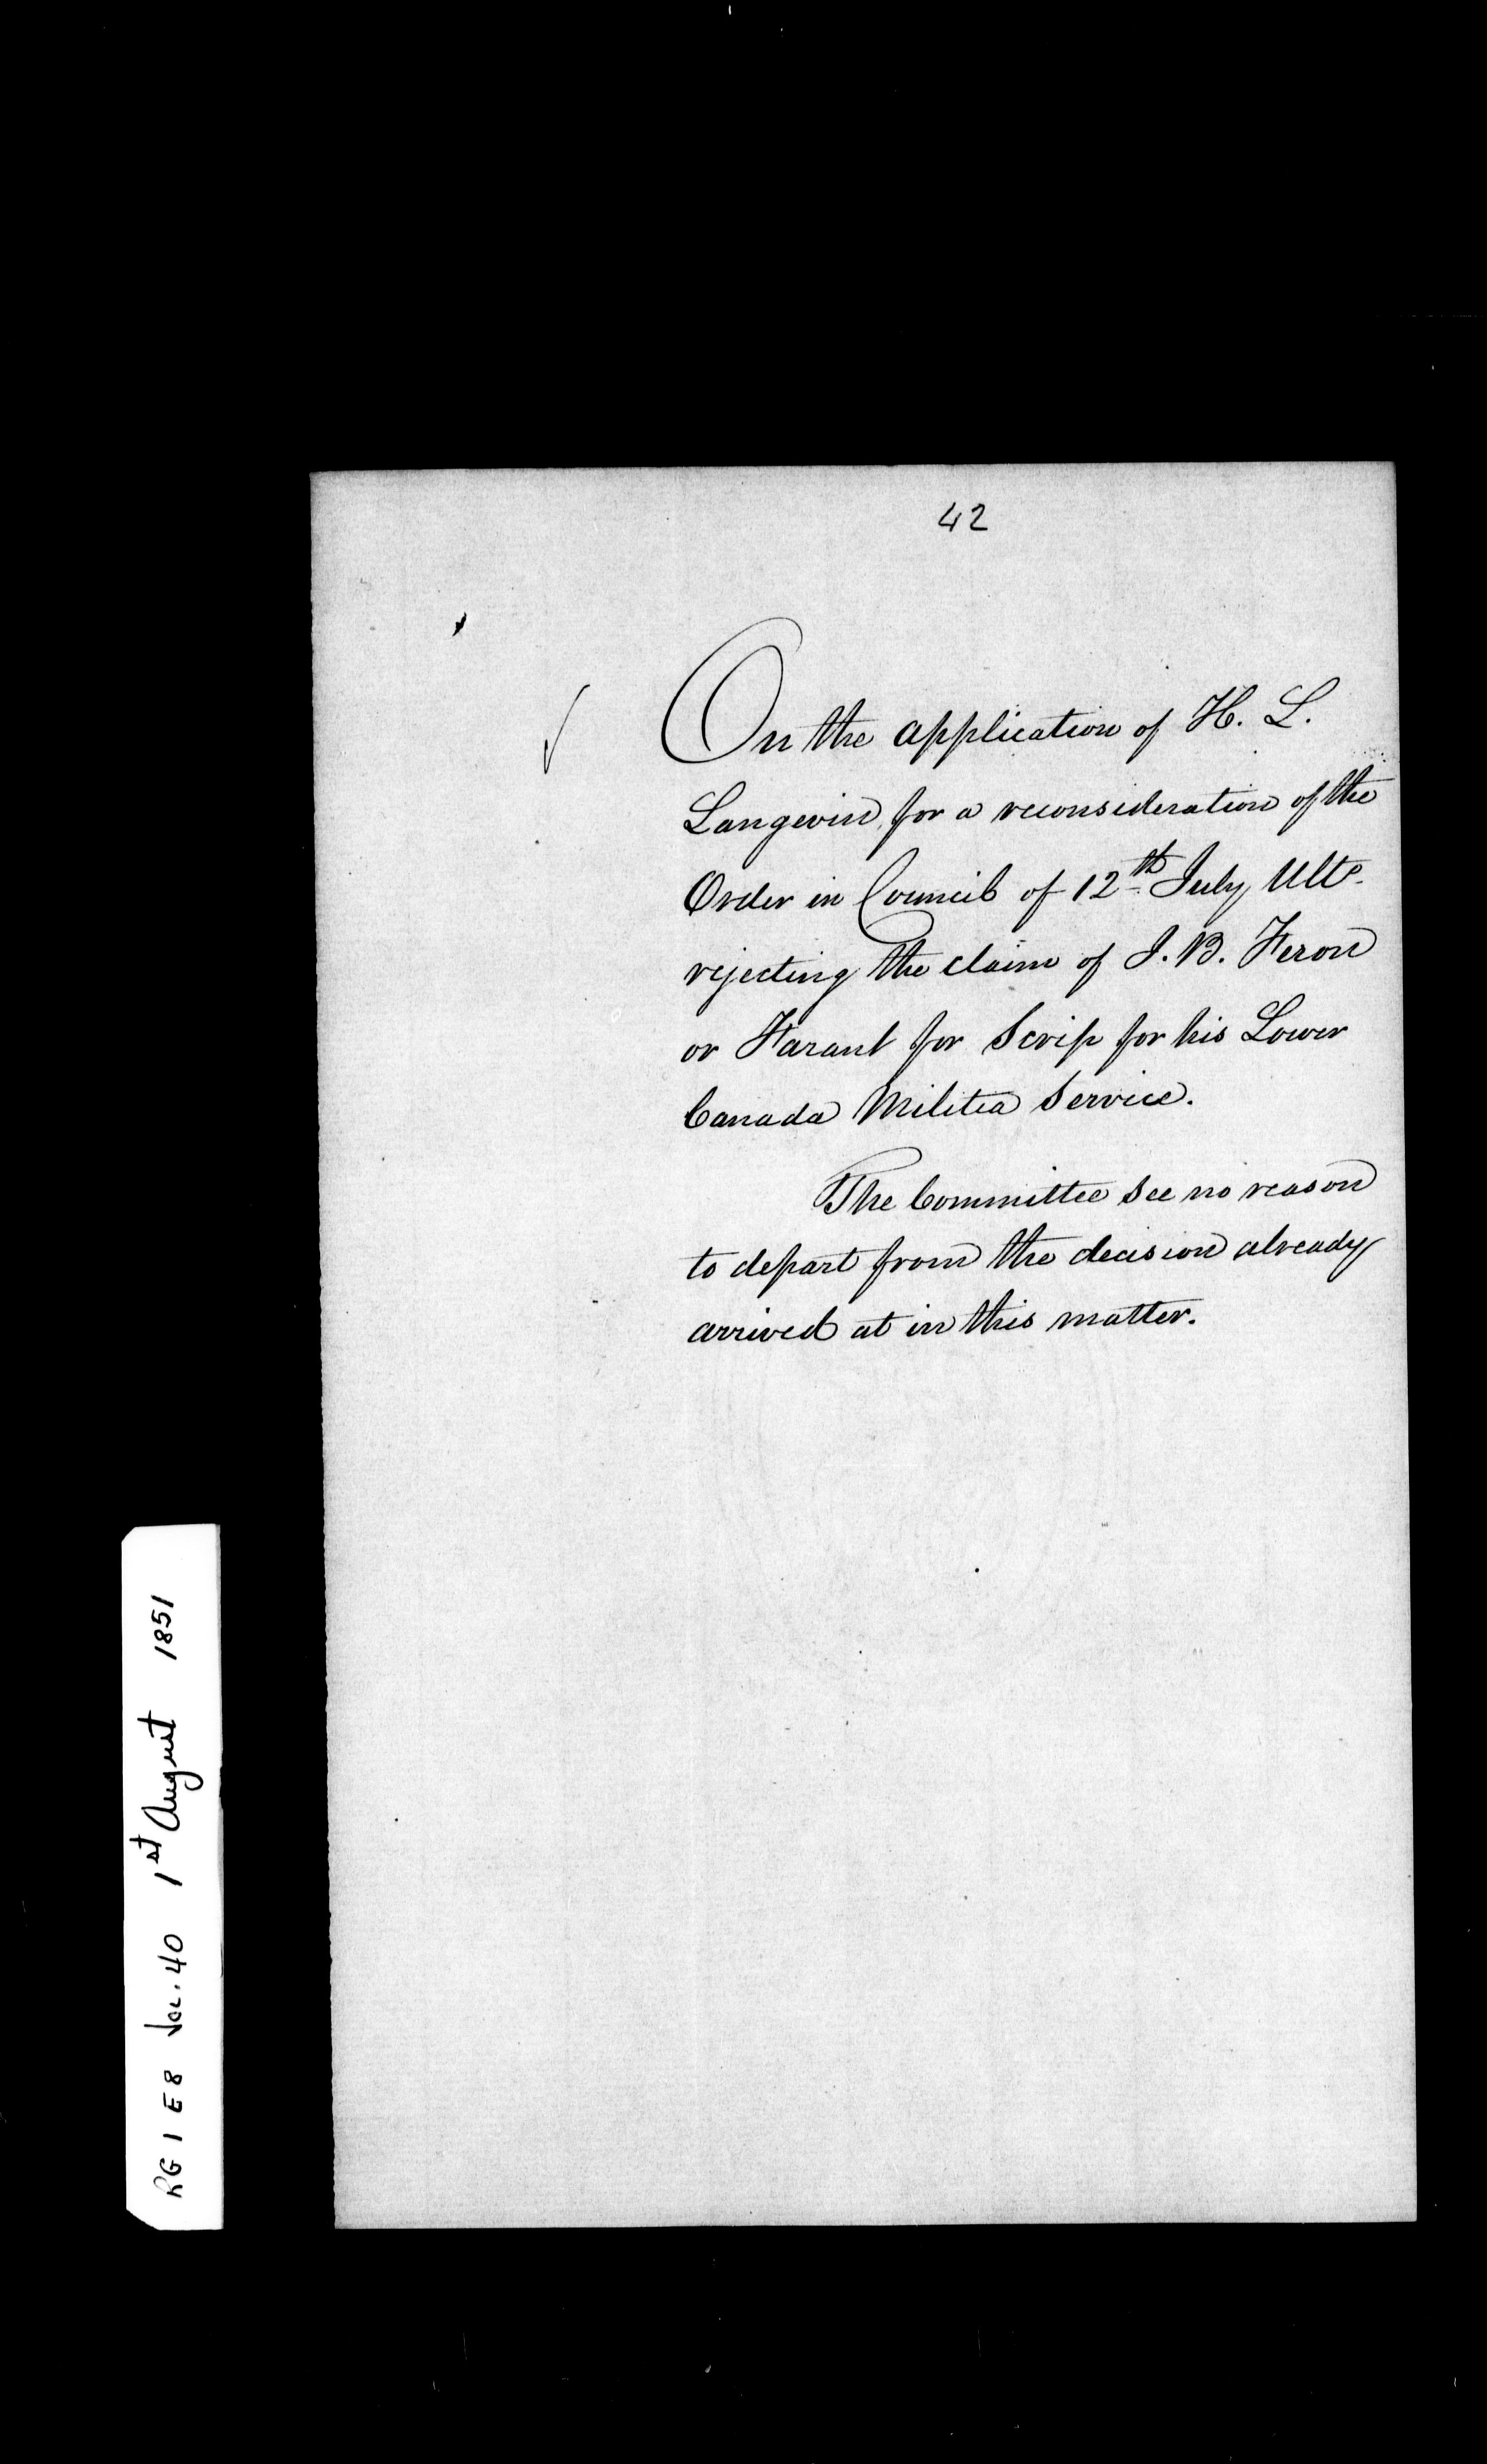 42
On the application of H. L.
Langevin, for a reconsideration of the
Order in Council of 12th July Ulto.
rejecting the claim of J. B. Feron
or Farant for Scrip for his Lower
Canada Militia Service.
The Committee see no reason
to depart from the decision already
arrived at in this matter.
RG 1 E8 Vol. 40 1st August 1851